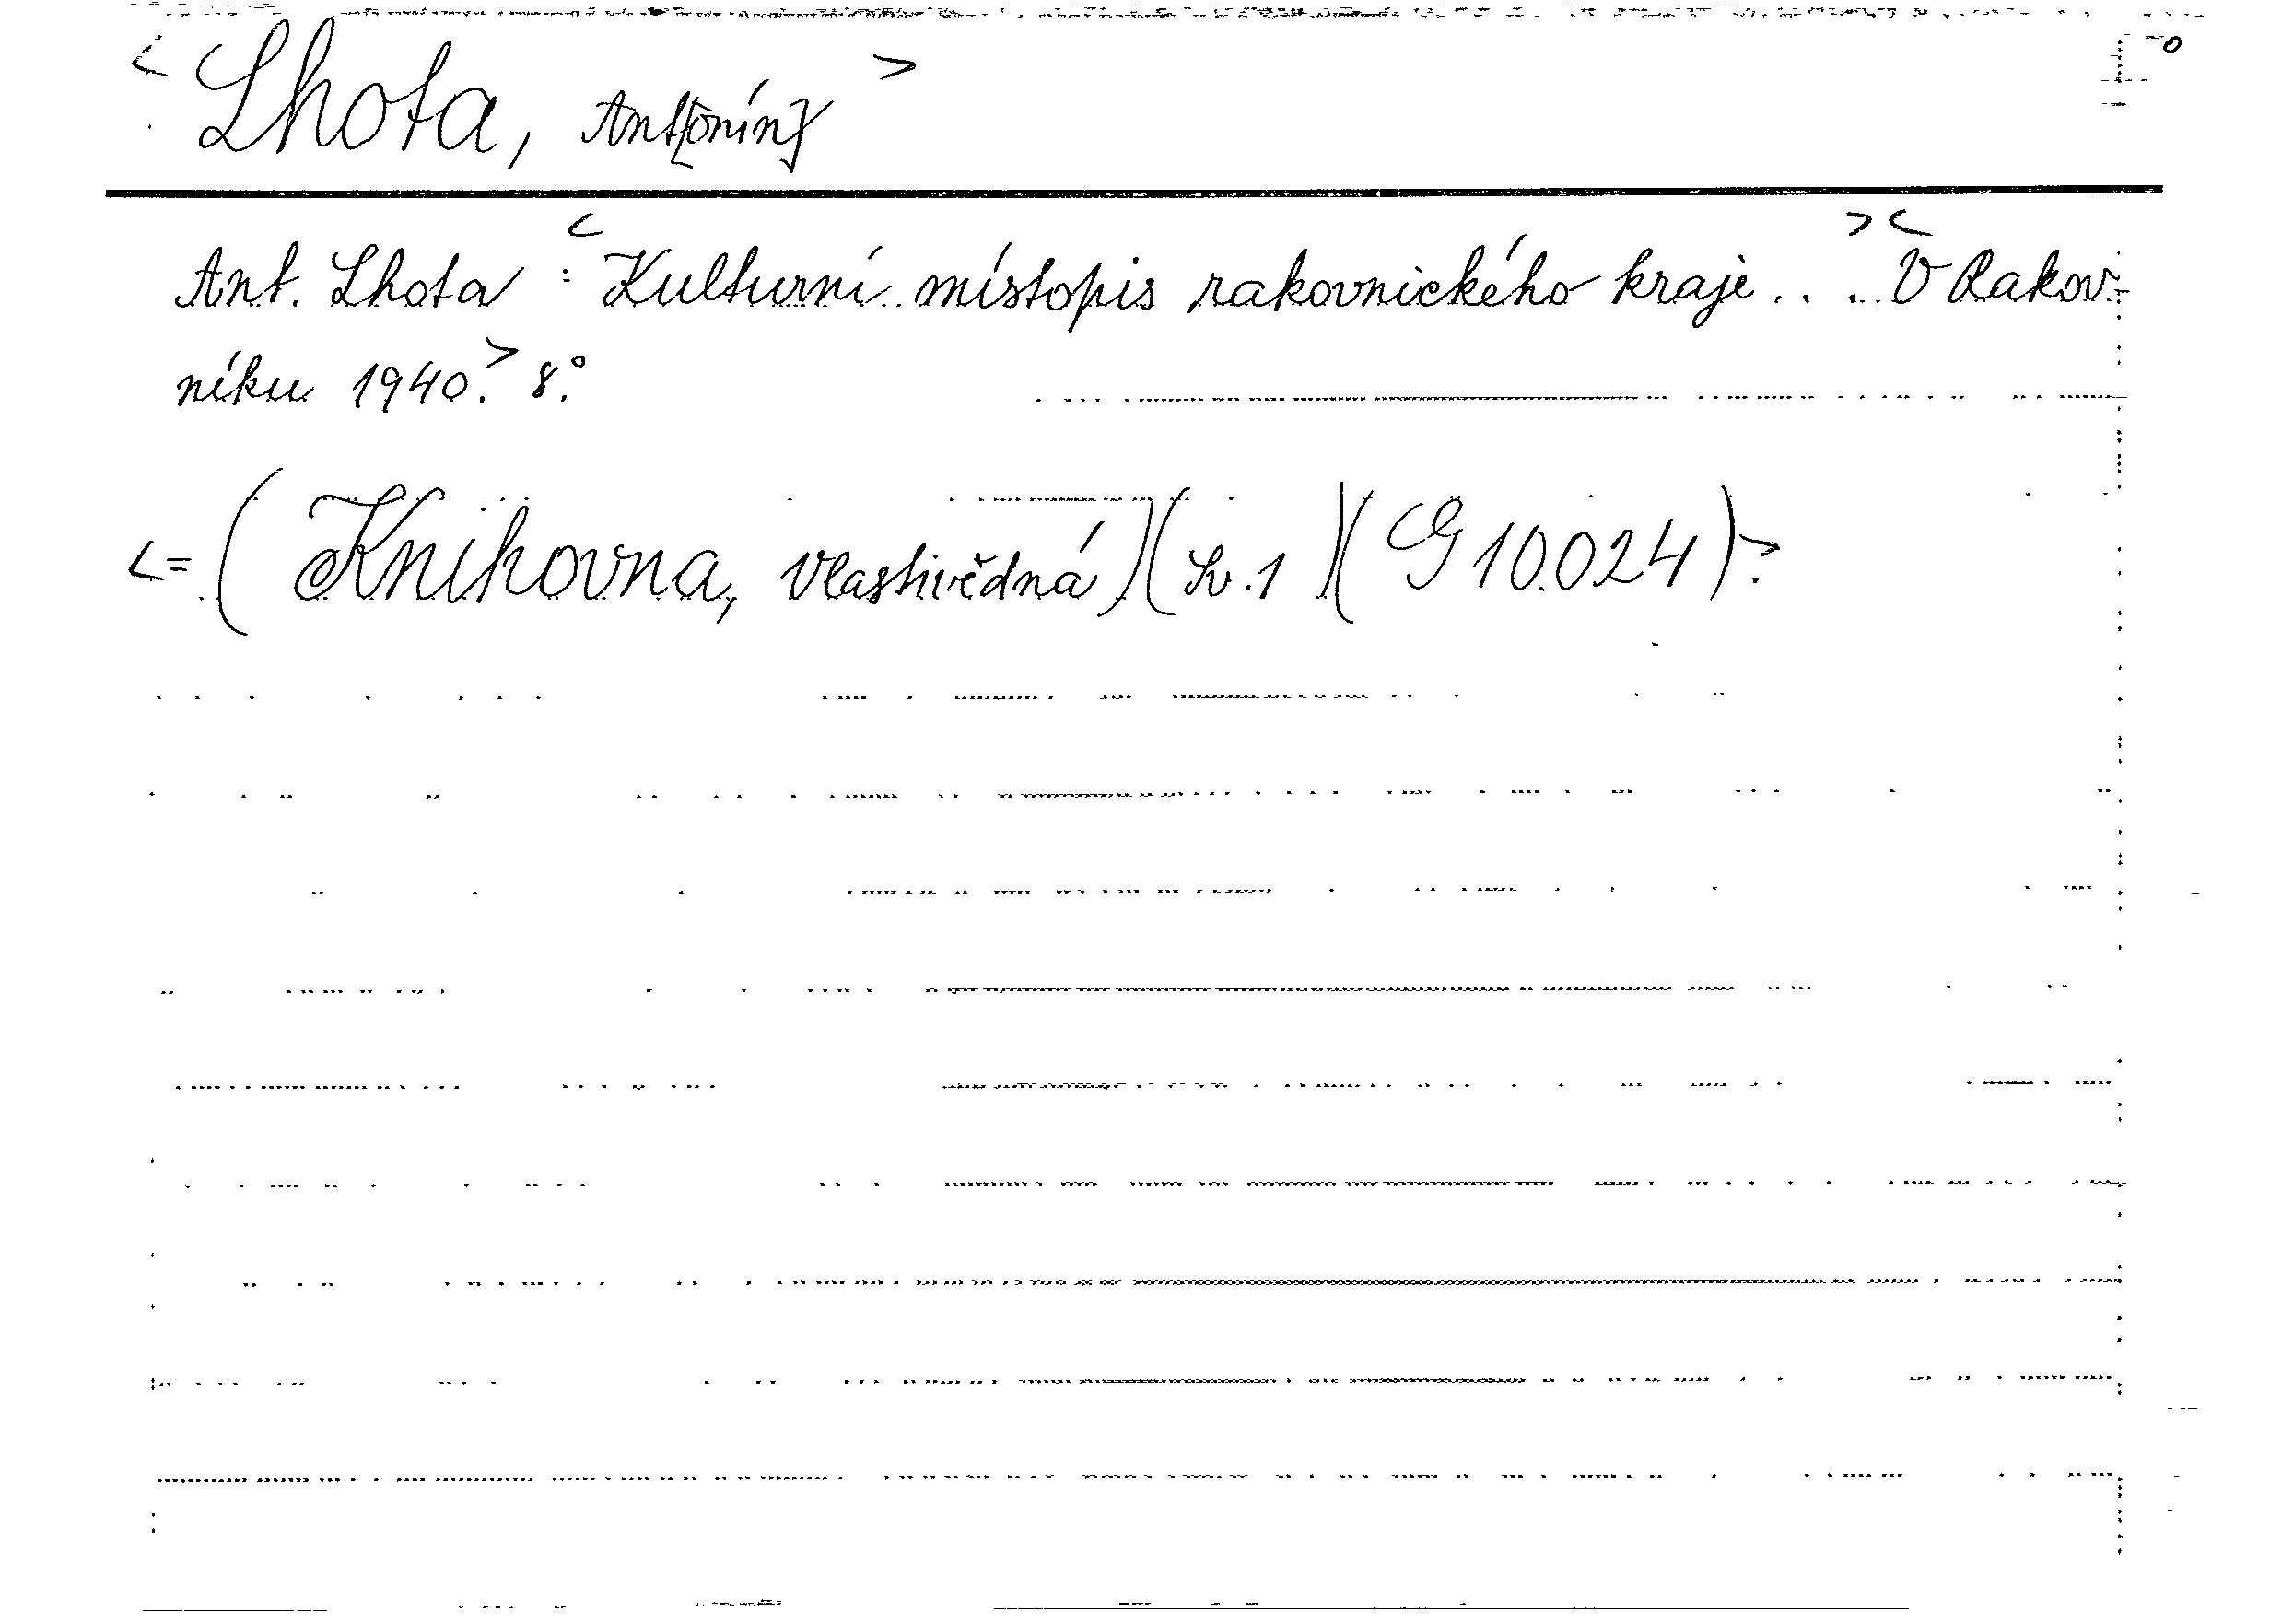 < Lhota, Ant[onín] >
Ant. Lhota : < Kulturní místopis rakovnického kraje . . . > < V Rakov-
níku 1940. > 8.°
< = ( Knihovna, vlastivědná ) ( Sv. 1 ) ( G 10.024 ) . >